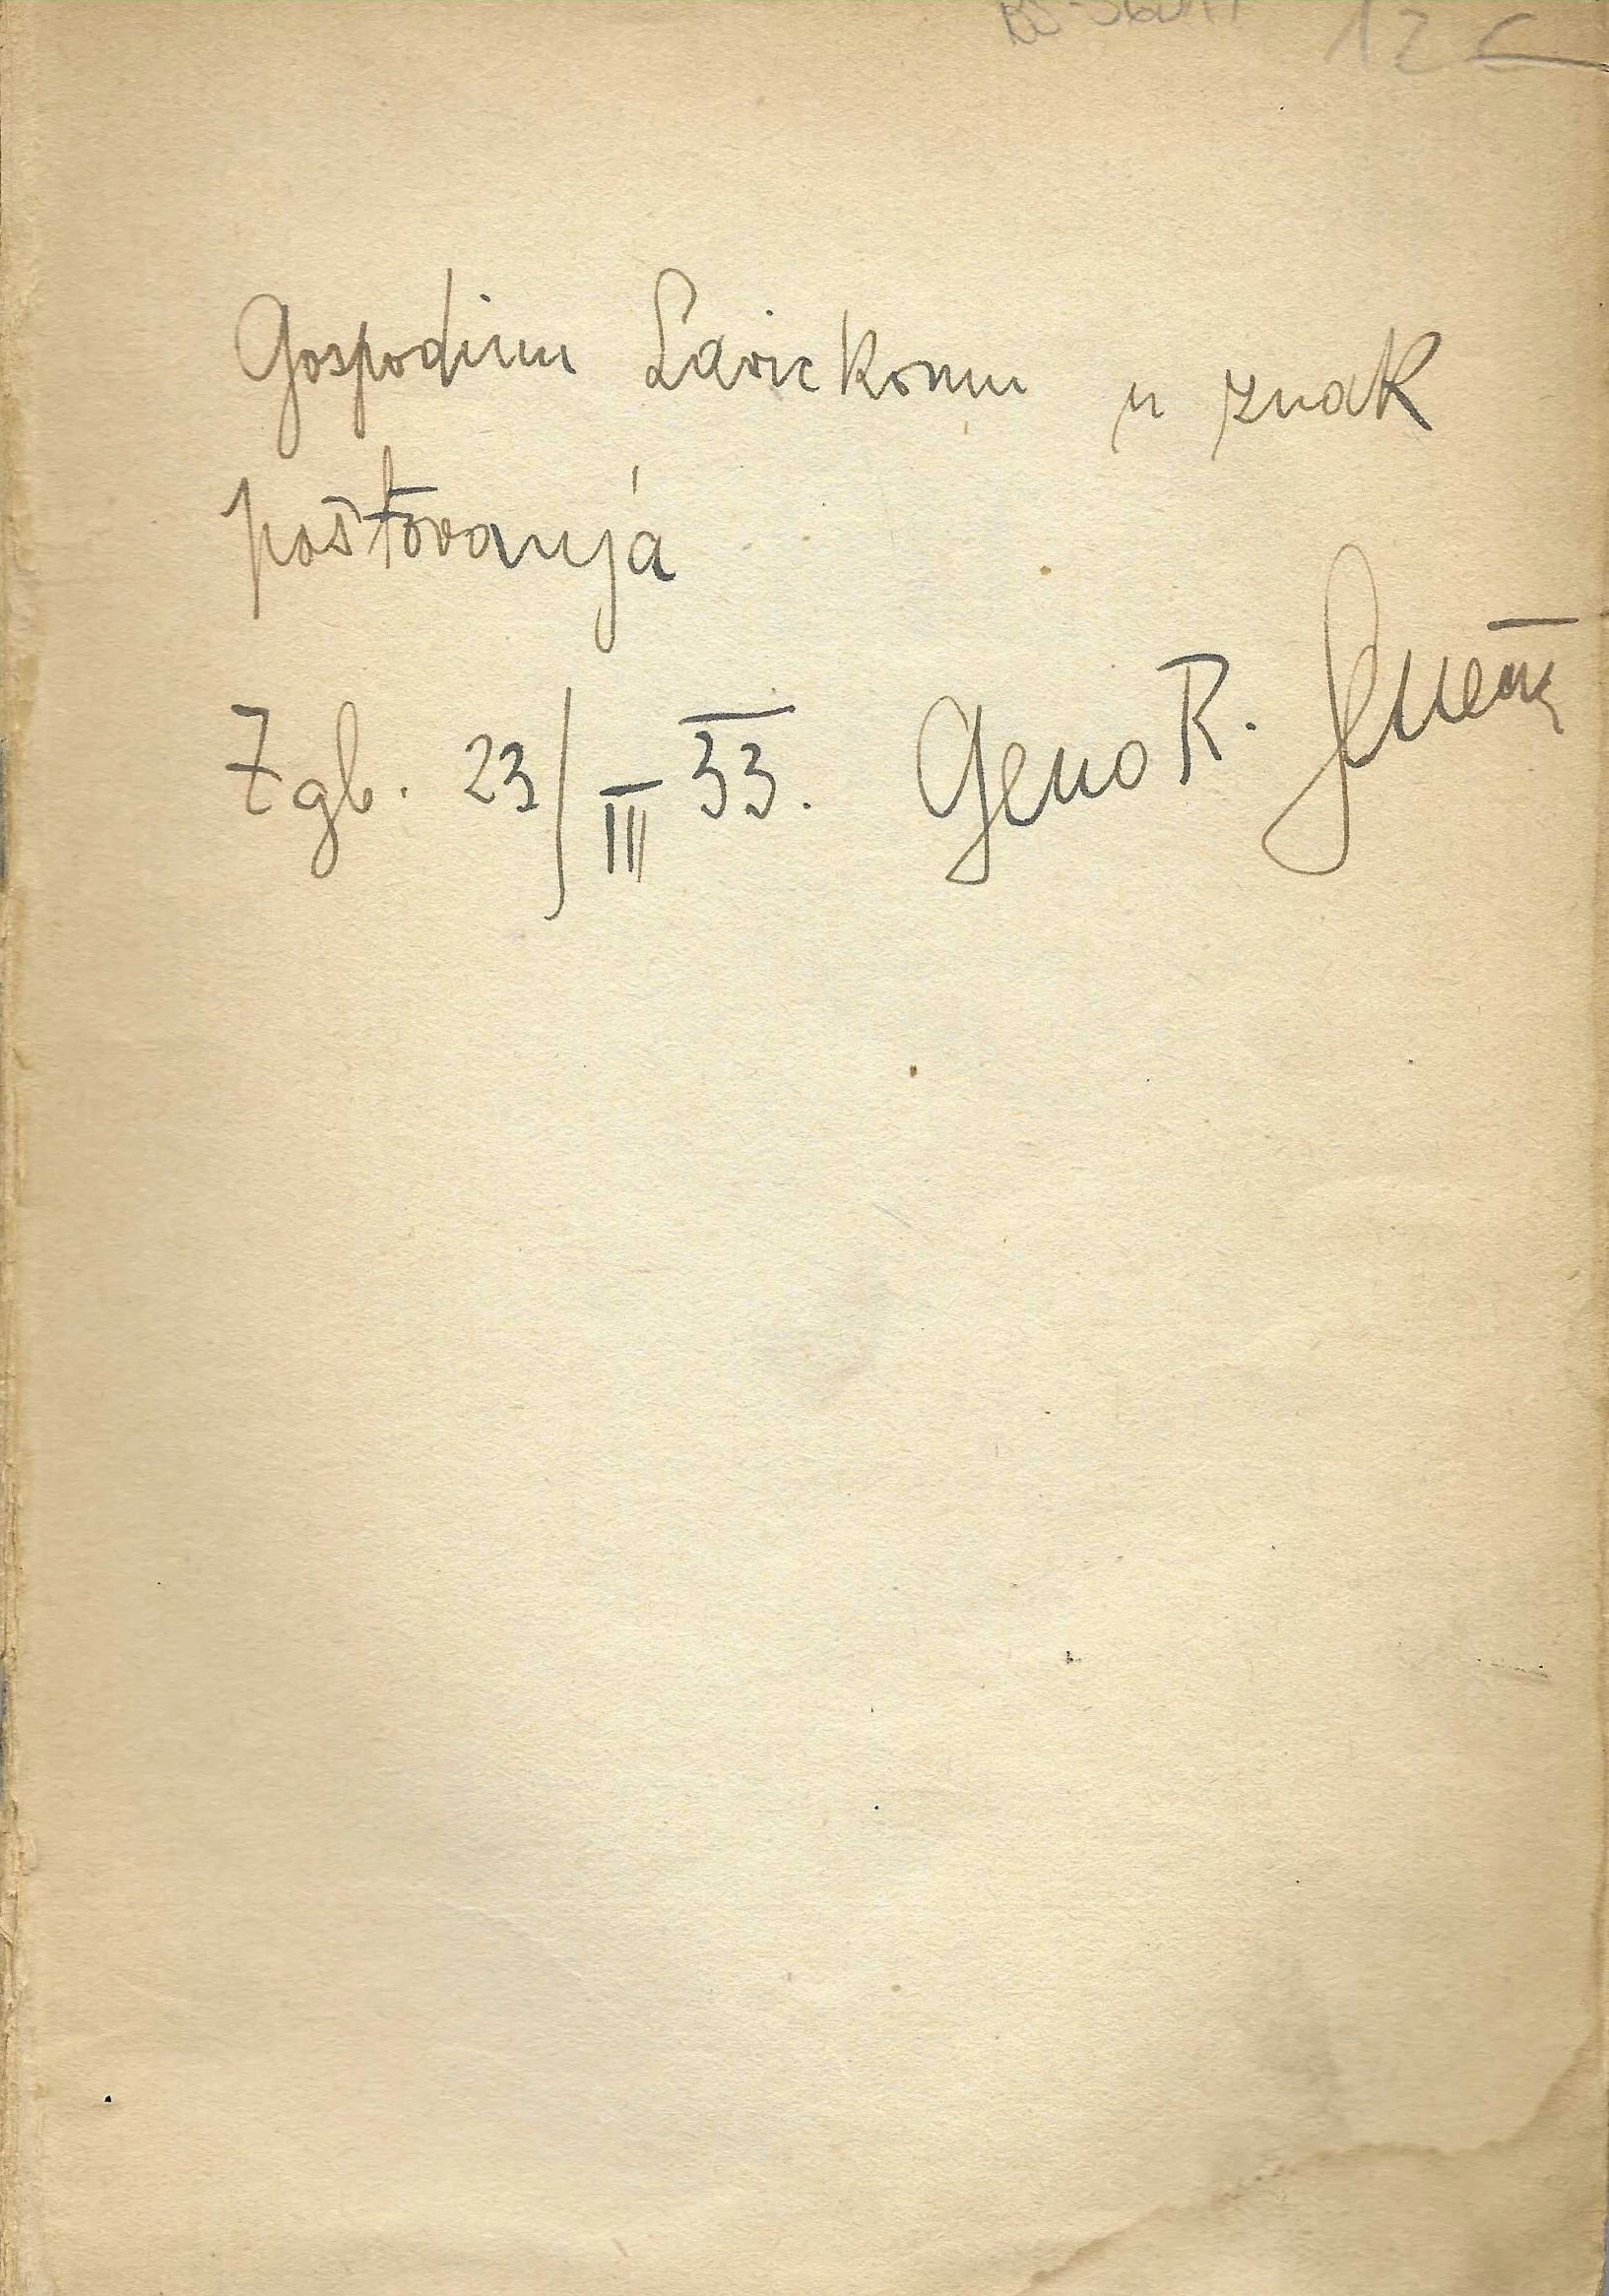 12
Gospodinu Savickomu u znak
poštovanja
Zgb. 23/III 33. Geno R. Senečić